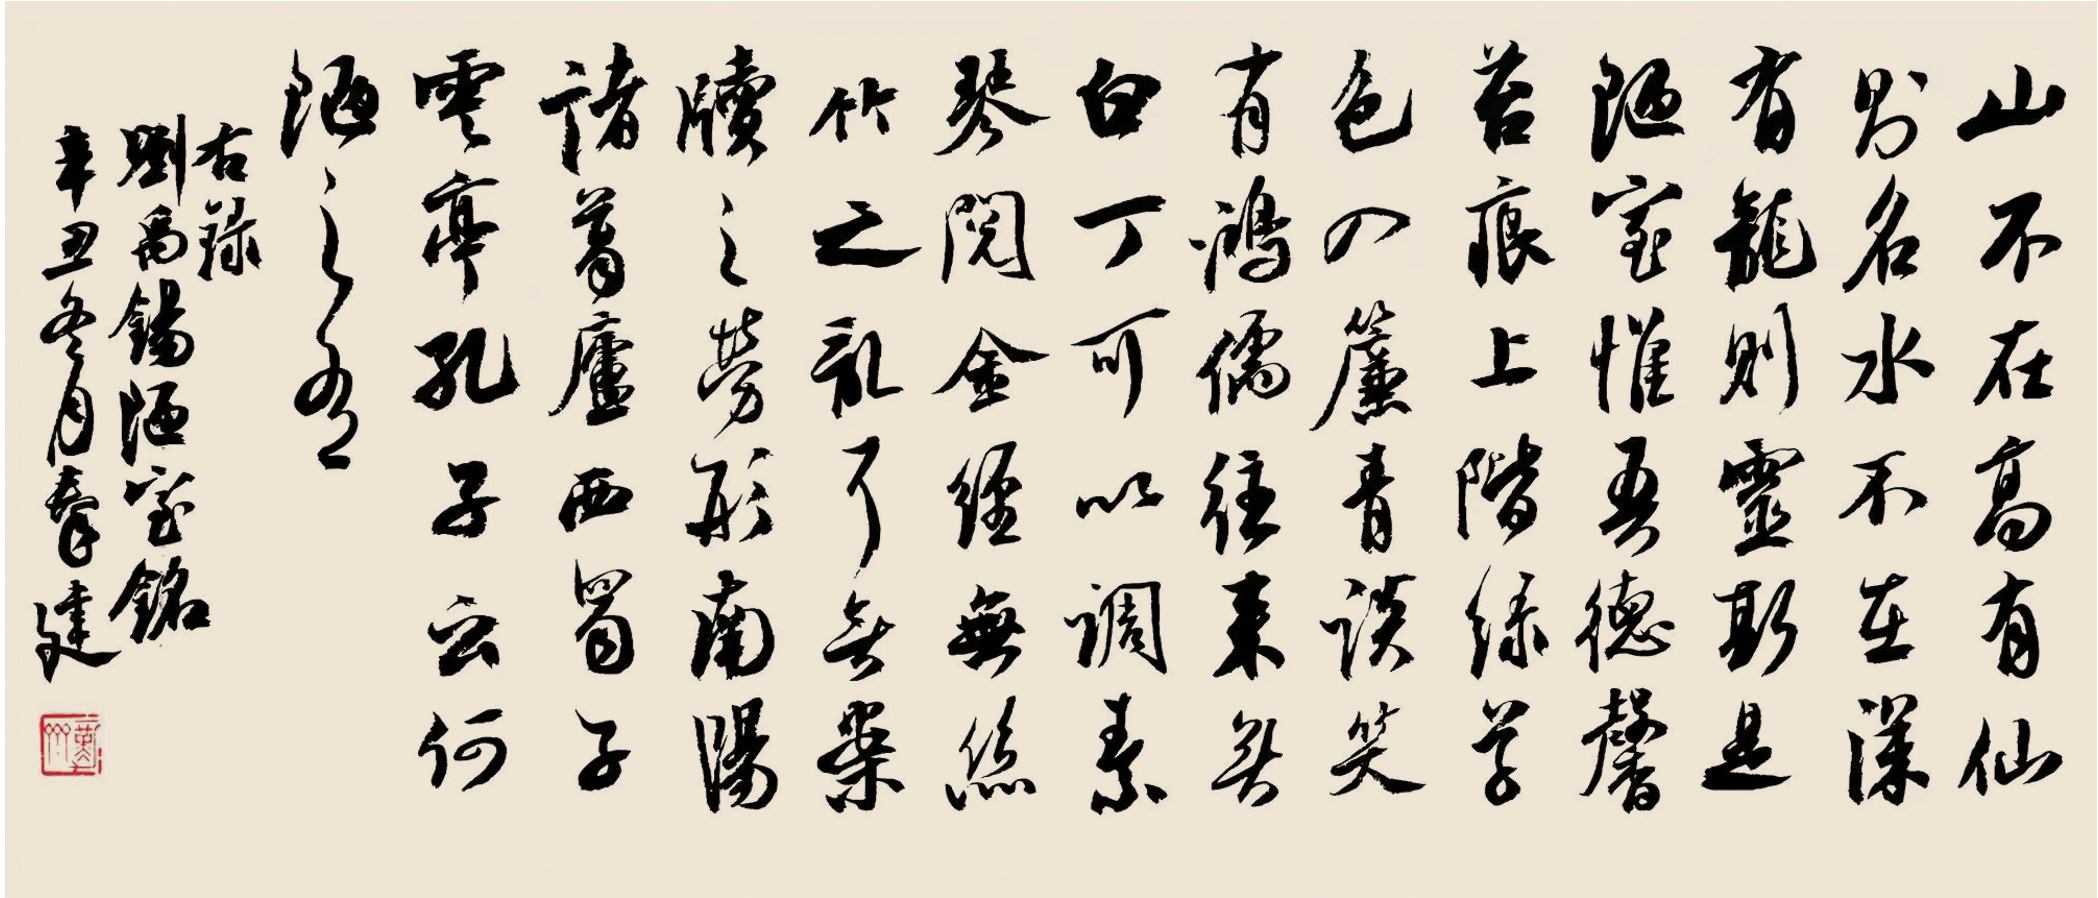 山不在高有仙
則名水不在深
有龍則靈斯是
陋室惟吾德馨
苔痕上階綠草
色入簾青談笑
有鴻儒往來無
白丁可以調素
琴閱金經無絲
竹之亂耳無案
牘之勞形南陽
諸葛廬西蜀子
雲亭孔子云何
陋之有
右録
劉禹錫陋室銘
辛丑冬月建